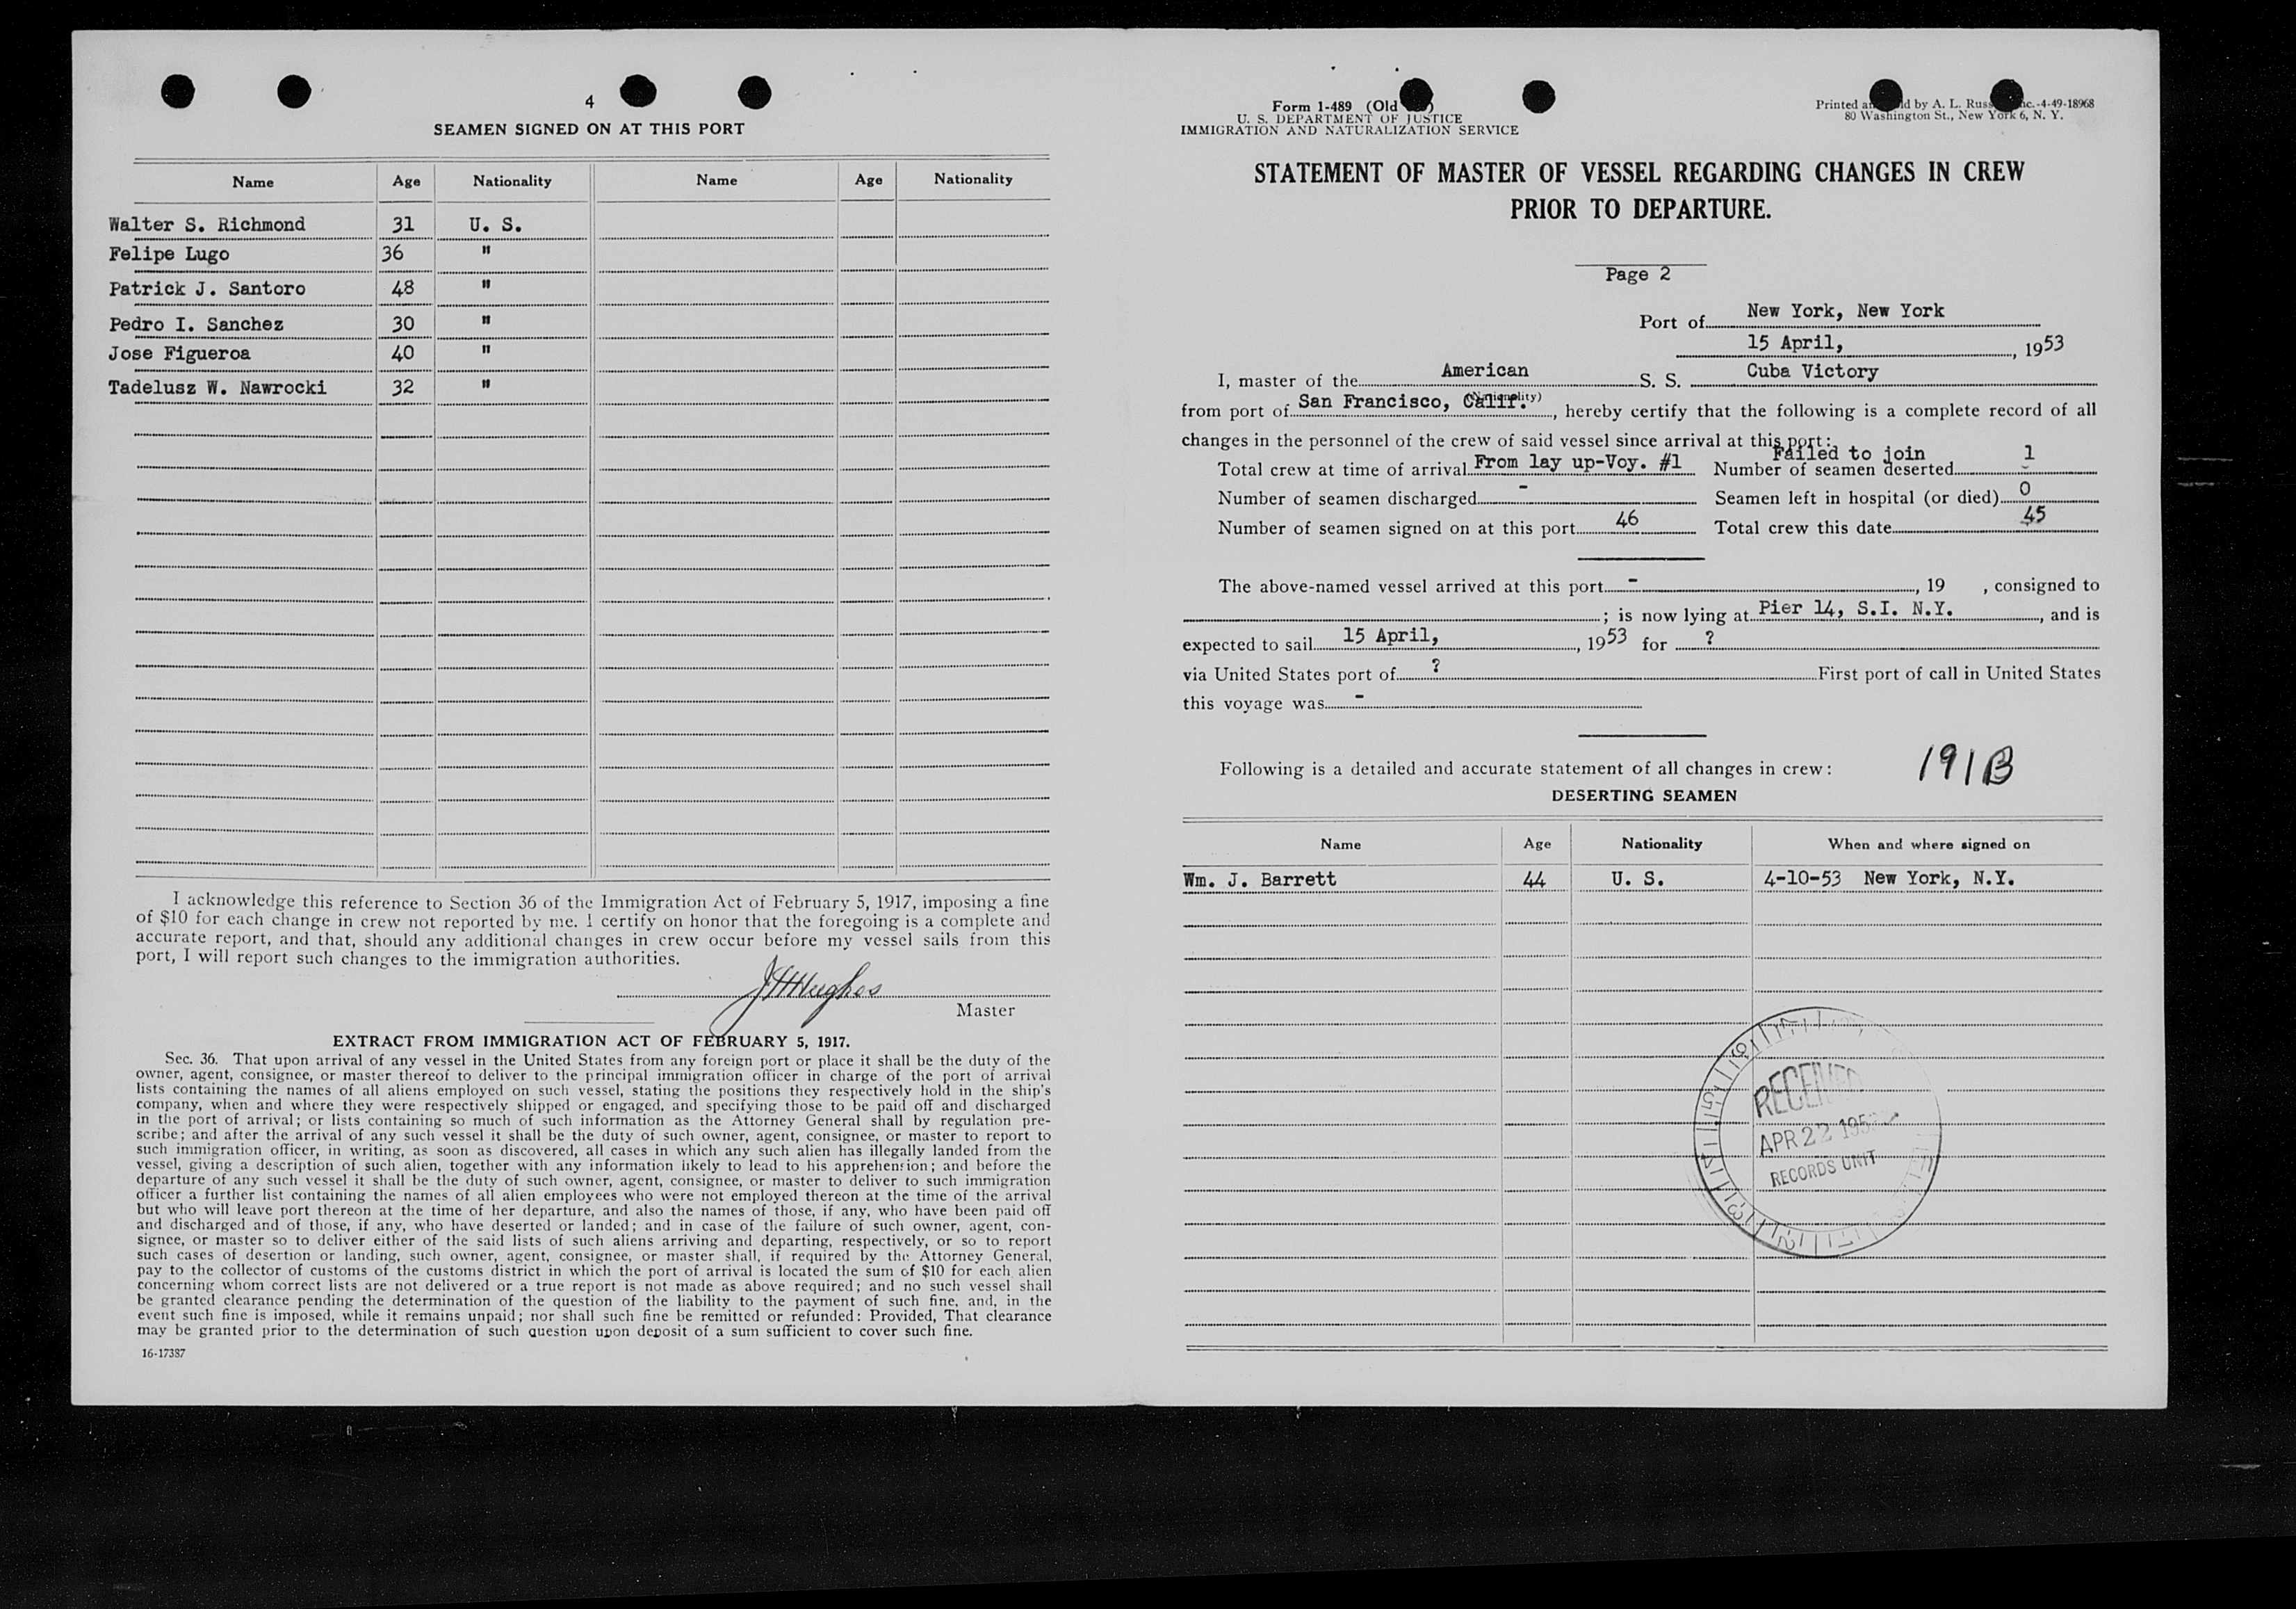 4
SEAMEN SIGNED ON AT THIS PORT
Name Age Nationality Name Age Nationality
Walter S. Richmond 31 U. S.
Felipe Lugo 36 "
Patrick J. Santoro 48 "
Pedro I. Sanchez 30 "
Jose Figueroa 40 "
Tadelusz W. Nawrocki 32 "
I acknowledge this reference to Section 36 of the Immigration Act of February 5, 1917, imposing a fine
of $10 for each change in crew not reported by me. I certify on honor that the foregoing is a complete and
accurate report, and that, should any additional changes in crew occur before my vessel sails from this
port, I will report such changes to the immigration authorities.
Hughes
Master
EXTRACT FROM IMMIGRATION ACT OF FEBRUARY 5, 1917.
Sec. 36. That upon arrival of any vessel in the United States from any foreign port or place it shall be the duty of the
owner, agent, consignee, or master thereof to deliver to the principal immigration officer in charge of the port of arrival
lists containing the names of all aliens employed on such vessel, stating the positions they respectively hold in the ship's
company, when and where they were respectively shipped or engaged, and specifying those to be paid off and discharged
in the port of arrival; or lists containing so much of such information as the Attorney General shall by regulation pre-
scribe; and after the arrival of any such vessel it shall be the duty of such owner, agent, consignee, or master to report to
such immigration officer, in writing, as soon as discovered, all cases in which any such alien has illegally landed from the
vessel, giving a description of such alien, together with any information likely to lead to his apprehension; and before the
departure of any such vessel it shall be the duty of such owner, agent, consignee, or master to deliver to such immigration
officer a further list containing the names of all alien employees who were not employed thereon at the time of the arrival
but who will leave port thereon at the time of her departure, and also the names of those, if any, who have been paid off
and discharged and of those, if any, who have deserted or landed; and in case of the failure of such owner, agent, con-
signee, or master so to deliver either of the said lists of such aliens arriving and departing, respectively, or so to report
such cases of desertion or landing, such owner, agent, consignee, or master shall, if required by the Attorney General,
pay to the collector of customs of the customs district in which the port of arrival is located the sum of $10 for each alien
concerning whom correct lists are not delivered or a true report is not made as above required; and no such vessel shall
be granted clearance pending the determination of the question of the liability to the payment of such fine, and, in the
event such fine is imposed, while it remains unpaid; nor shall such fine be remitted or refunded: Provided, That clearance
may be granted prior to the determination of such question upon deposit of a sum sufficient to cover such fine.
16-17387
Form 1-489 (Old
U. S. DEPARTMENT OF JUSTICE
IMMIGRATION AND NATURALIZATION SERVICE
Printed and by A. L. Russ -4-49-18968
80 Washington St., New York 6, N. Y.
STATEMENT OF MASTER OF VESSEL REGARDING CHANGES IN CREW
PRIOR TO DEPARTURE.
Page 2
Port of New York, New York
15 April, 1953
I, master of the American S. S. Cuba Victory
(Nationality)
from port of San Francisco, Calif. , hereby certify that the following is a complete record of all
changes in the personnel of the crew of said vessel since arrival at this port:
Failed to join
Total crew at time of arrival From lay up-Voy. #1 Number of seamen deserted 1
Number of seamen discharged - Seamen left in hospital (or died) 0
Number of seamen signed on at this port 46 Total crew this date 45
The above-named vessel arrived at this port - , 19 , consigned to
; is now lying at Pier 14, S.I. N.Y. , and is
expected to sail 15 April, , 1953 for ?
via United States port of ? First port of call in United States
this voyage was -
Following is a detailed and accurate statement of all changes in crew: 191B
DESERTING SEAMEN
Name Age Nationality When and where signed on
Wm. J. Barrett 44 U. S. 4-10-53 New York, N.Y.
RECEIVED
APR 22 195
RECORDS UNIT